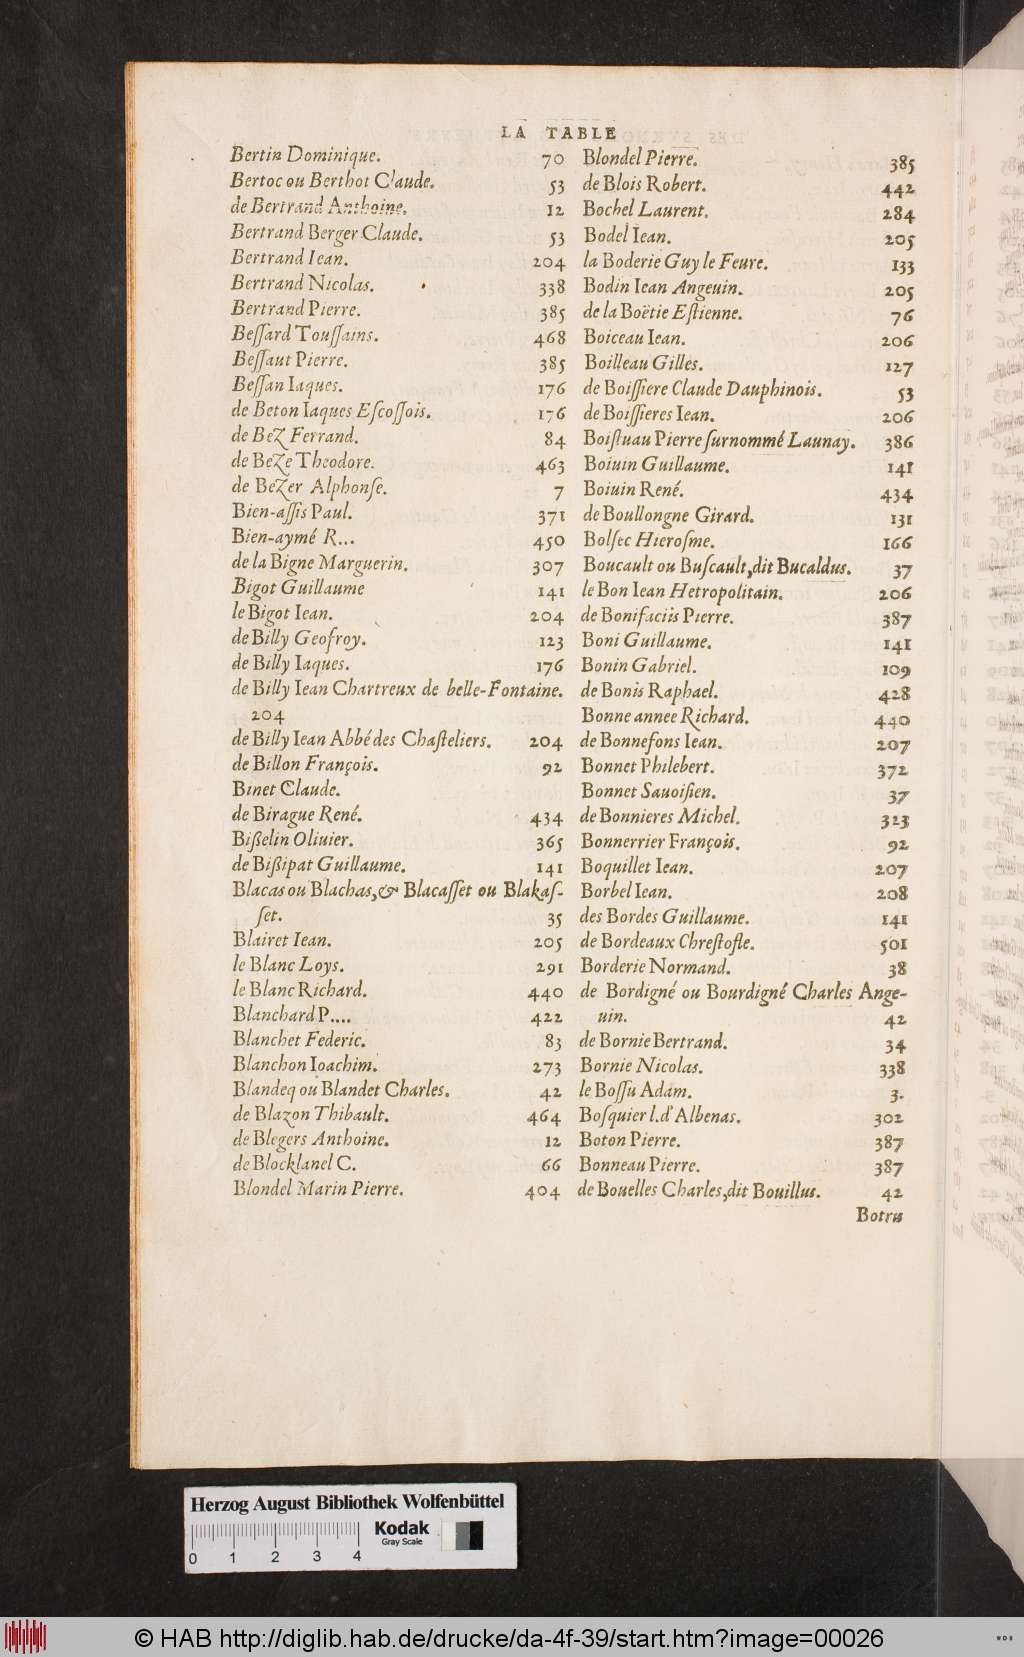 LA TABLE
Bertin Dominique. 70
Bertoc ou Berthot Claude. 53
de Bertrand Anthoine. 12
Bertrand Berger Claude. 53
Bertrand Iean. 204
Bertrand Nicolas. 338
Bertrand Pierre. 385
Beſſard Touſſains. 468
Beſſaut Pierre. 385
Beſſan Iaques. 176
de Beton Iaques Eſcoſſois. 176
de Bez Ferrand. 84
de Beze Theodore. 463
de Bezer Alphonſe. 7
Bien-aſſis Paul. 371
Bien-aymé R... 450
de la Bigne Marguerin. 307
Bigot Guillaume 141
le Bigot Iean. 204
de Billy Geofroy. 123
de Billy Iaques. 176
de Billy Iean Chartreux de belle-Fontaine.
204
de Billy Iean Abbé des Chaſteliers. 204
de Billon François. 92
Binet Claude.
de Birague René. 434
Bißelin Oliuier. 365
de Bißipat Guillaume. 141
Blacas ou Blachas, & Blacaſſet ou Blakaſ-
ſet. 35
Blairet Iean. 205
le Blanc Loys. 291
le Blanc Richard. 440
Blanchard P.... 422
Blanchet Federic. 83
Blanchon Ioachim. 273
Blandeq ou Blandet Charles. 42
de Blazon Thibault. 464
de Blegers Anthoine. 12
de Blocklanel C. 66
Blondel Marin Pierre. 404
Blondel Pierre. 385
de Blois Robert. 442
Bochel Laurent. 284
Bodel Iean. 205
la Boderie Guy le Feure. 133
Bodin Iean Angeuin. 205
de la Boëtie Eſtienne. 76
Boiceau Iean. 206
Boilleau Gilles. 127
de Boiſſiere Claude Dauphinois. 53
de Boiſſieres Iean. 206
Boiſtuau Pierre ſurnommé Launay. 386
Boiuin Guillaume. 141
Boiuin René. 434
de Boullongne Girard. 131
Bolſec Hieroſme. 166
Boucault ou Buſcault, dit Bucaldus. 37
le Bon Iean Hetropolitain. 206
de Bonifaciis Pierre. 387
Boni Guillaume. 141
Bonin Gabriel. 109
de Bonis Raphael. 428
Bonne annee Richard. 440
de Bonnefons Iean. 207
Bonnet Philebert. 372
Bonnet Sauoiſien. 37
de Bonnieres Michel. 323
Bonnerrier François. 92
Boquillet Iean. 207
Borbel Iean. 208
des Bordes Guillaume. 141
de Bordeaux Chreſtofle. 501
Borderie Normand. 38
de Bordigné ou Bourdigné Charles Ange-
uin. 42
de Bornie Bertrand. 34
Bornie Nicolas. 338
le Boſſu Adam. 3.
Boſquier l. d'Albenas. 302
Boton Pierre. 387
Bonneau Pierre. 387
de Bouelles Charles, dit Bouillus. 42
Botru
Herzog August Bibliothek Wolfenbüttel
Kodak
Gray Scale
0 1 2 3 4
© HAB http://diglib.hab.de/drucke/da-4f-39/start.htm?image=00026